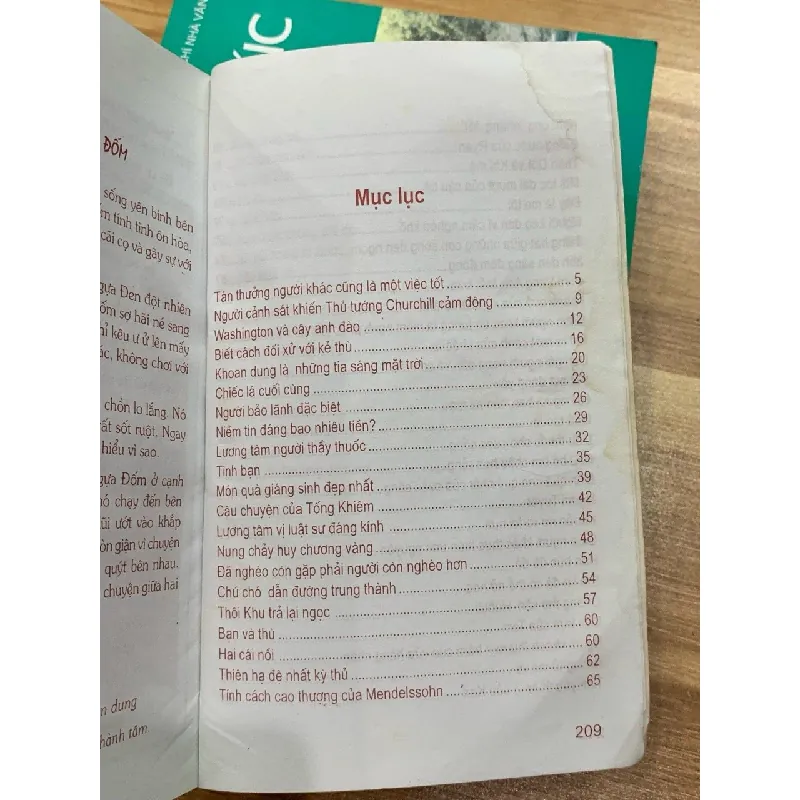 CHÍ NHÀ VĂN
ÚC
ĐỐM
sống yên bình bên
tính tình ôn hòa,
cãi cọ và gây sự với
gựa Đen đột nhiên
ốm sợ hãi né sang
hỉ kêu ư ử lên mấy
ác, không chơi với
chồn lo lắng. Nó
ất sốt ruột. Ngay
hiểu vì sao.
gựa Đốm ở cạnh
ó chạy đến bên
ũi ướt vào khắp
òn giận vì chuyện
quýt bên nhau.
chuyện giữa hai
n dung
hành tâm
Mục lục
Tán thưởng người khác cũng là một việc tốt ... 5
Người cảnh sát khiến Thủ tướng Churchill cảm động ... 9
Washington và cây anh đào ... 12
Biết cách đối xử với kẻ thù ... 16
Khoan dung là những tia sáng mặt trời ... 20
Chiếc lá cuối cùng ... 23
Người bảo lãnh đặc biệt ... 26
Niềm tin đáng bao nhiêu tiền? ... 29
Lương tâm người thầy thuốc ... 32
Tình bạn ... 35
Món quà giáng sinh đẹp nhất ... 39
Câu chuyện của Tống Khiêm ... 42
Lương tâm vị luật sư đáng kính ... 45
Nung chảy huy chương vàng ... 48
Đã nghèo còn gặp phải người còn nghèo hơn ... 51
Chú chó dẫn đường trung thành ... 54
Thôi Khu trả lại ngọc ... 57
Bạn và thù ... 60
Hai cái nồi ... 60
Thiên hạ đệ nhất kỳ thủ ... 62
Tính cách cao thượng của Mendelssohn ... 65
209